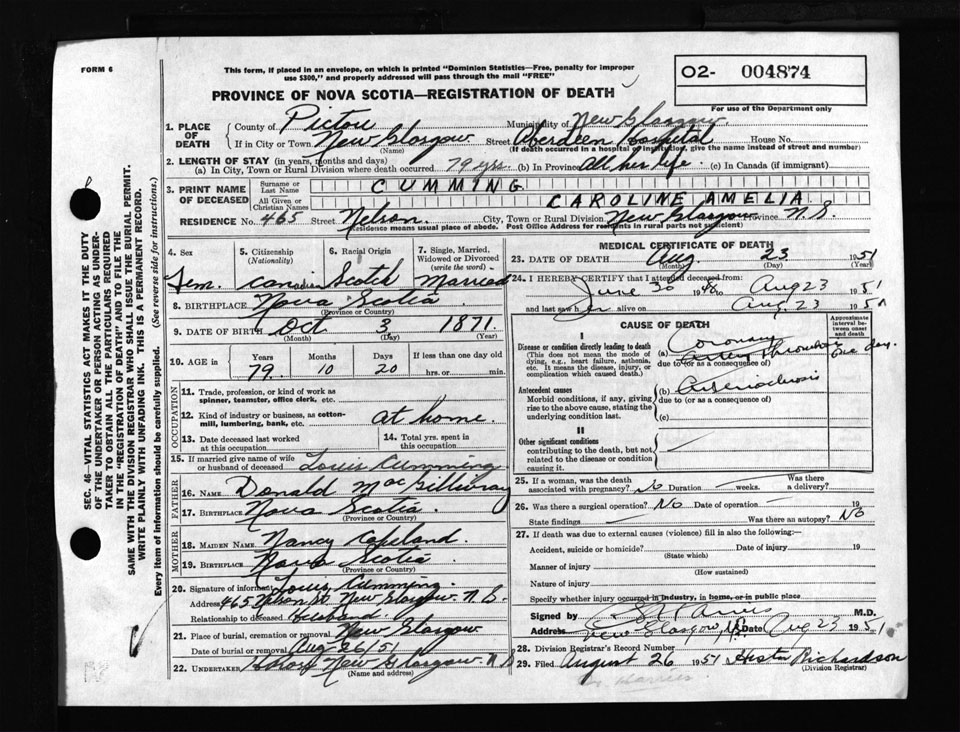 FORM 6
This form, if placed in an envelope, on which is printed "Dominion Statistics—Free, penalty for improper
use $300," and properly addressed will pass through the mail "FREE"
PROVINCE OF NOVA SCOTIA—REGISTRATION OF DEATH
02- 004874
For use of the Department only
SEC. 46—VITAL STATISTICS ACT MAKES IT THE DUTY
OF THE UNDERTAKER OR PERSON ACTING AS UNDER-
TAKER TO OBTAIN ALL THE PARTICULARS REQUIRED
IN THE "REGISTRATION OF DEATH" AND TO FILE THE
SAME WITH THE DIVISION REGISTRAR WHO SHALL ISSUE THE BURIAL PERMIT.
WRITE PLAINLY WITH UNFADING INK. THIS IS A PERMANENT RECORD.
Every item of information should be carefully supplied. (See reverse side for instructions.)
1. PLACE OF DEATH
County of Pictou Municipality of New Glasgow
If in City or Town New Glasgow Street Aberdeen Hospital House No.
(Name) (If death occurred in a hospital or institution, give the name instead of street and number)
2. LENGTH OF STAY (in years, months and days)
(a) In City, Town or Rural Division where death occurred 79 yrs. (b) In Province All her life (c) In Canada (if immigrant)
3. PRINT NAME OF DECEASED
Surname or Last Name CUMMING
All Given or Christian Names CAROLINE AMELIA
RESIDENCE No. 465 Street Nelson. City, Town or Rural Division New Glasgow Province N.S.
(Residence means usual place of abode. Post Office Address for residents in rural parts not sufficient)
4. Sex 5. Citizenship (Nationality) 6. Racial Origin 7. Single, Married, Widowed or Divorced (write the word)
Fem. Canadian Scotch Married
8. BIRTHPLACE Nova Scotia
(Province or Country)
9. DATE OF BIRTH Oct 3 1871
(Month) (Day) (Year)
10. AGE in Years Months Days If less than one day old
79. 10 20 hrs. or min.
OCCUPATION
11. Trade, profession, or kind of work as
spinner, teamster, office clerk, etc.
12. Kind of industry or business, as cotton-
mill, lumbering, bank, etc. at home
13. Date deceased last worked at this occupation
14. Total yrs. spent in this occupation
15. If married give name of wife
or husband of deceased Louis Cumming
FATHER
16. NAME Donald MacGillivray
17. BIRTHPLACE Nova Scotia
(Province or Country)
MOTHER
18. MAIDEN NAME Nancy Copeland
19. BIRTHPLACE Nova Scotia
(Province or Country)
20. Signature of informant Louis Cumming.
Address 465 Nelson St. New Glasgow. N.S.
Relationship to deceased Husband
21. Place of burial, cremation or removal New Glasgow
Date of burial or removal Aug 26/51
22. UNDERTAKER New Glasgow. N.S
(Name and address)
MEDICAL CERTIFICATE OF DEATH
23. DATE OF DEATH Aug 23 1951
(Month) (Day) (Year)
24. I HEREBY CERTIFY that I attended deceased from:
June 30 1948 to Aug 23 1951
and last saw her alive on Aug. 23 1951
CAUSE OF DEATH
Approximate interval between onset and death
I
Disease or condition directly leading to death
(This does not mean the mode of
dying, e.g., heart failure, asthenia,
etc. It means the disease, injury, or
complication which caused death.)
(a) Coronary Artery Thrombosis One day.
due to (or as a consequence of)
Antecedent causes
Morbid conditions, if any, giving
rise to the above cause, stating the
underlying condition last.
(b)
due to (or as a consequence of)
(c)
II
Other significant conditions
contributing to the death, but not
related to the disease or condition
causing it.
25. If a woman, was the death
associated with pregnancy? No Duration — weeks. Was there a delivery?
26. Was there a surgical operation? No Date of operation — 19
State findings — Was there an autopsy? No
27. If death was due to external causes (violence) fill in also the following:—
Accident, suicide or homicide? Date of injury 19
(State which)
Manner of injury
(How sustained)
Nature of injury
Specify whether injury occurred in industry, in home, or in public place
Signed by M.D.
Address New Glasgow, N.S. Date Aug 23 1951
28. Division Registrar's Record Number
29. Filed August 26 1951 Hester Richardson
(Division Registrar)